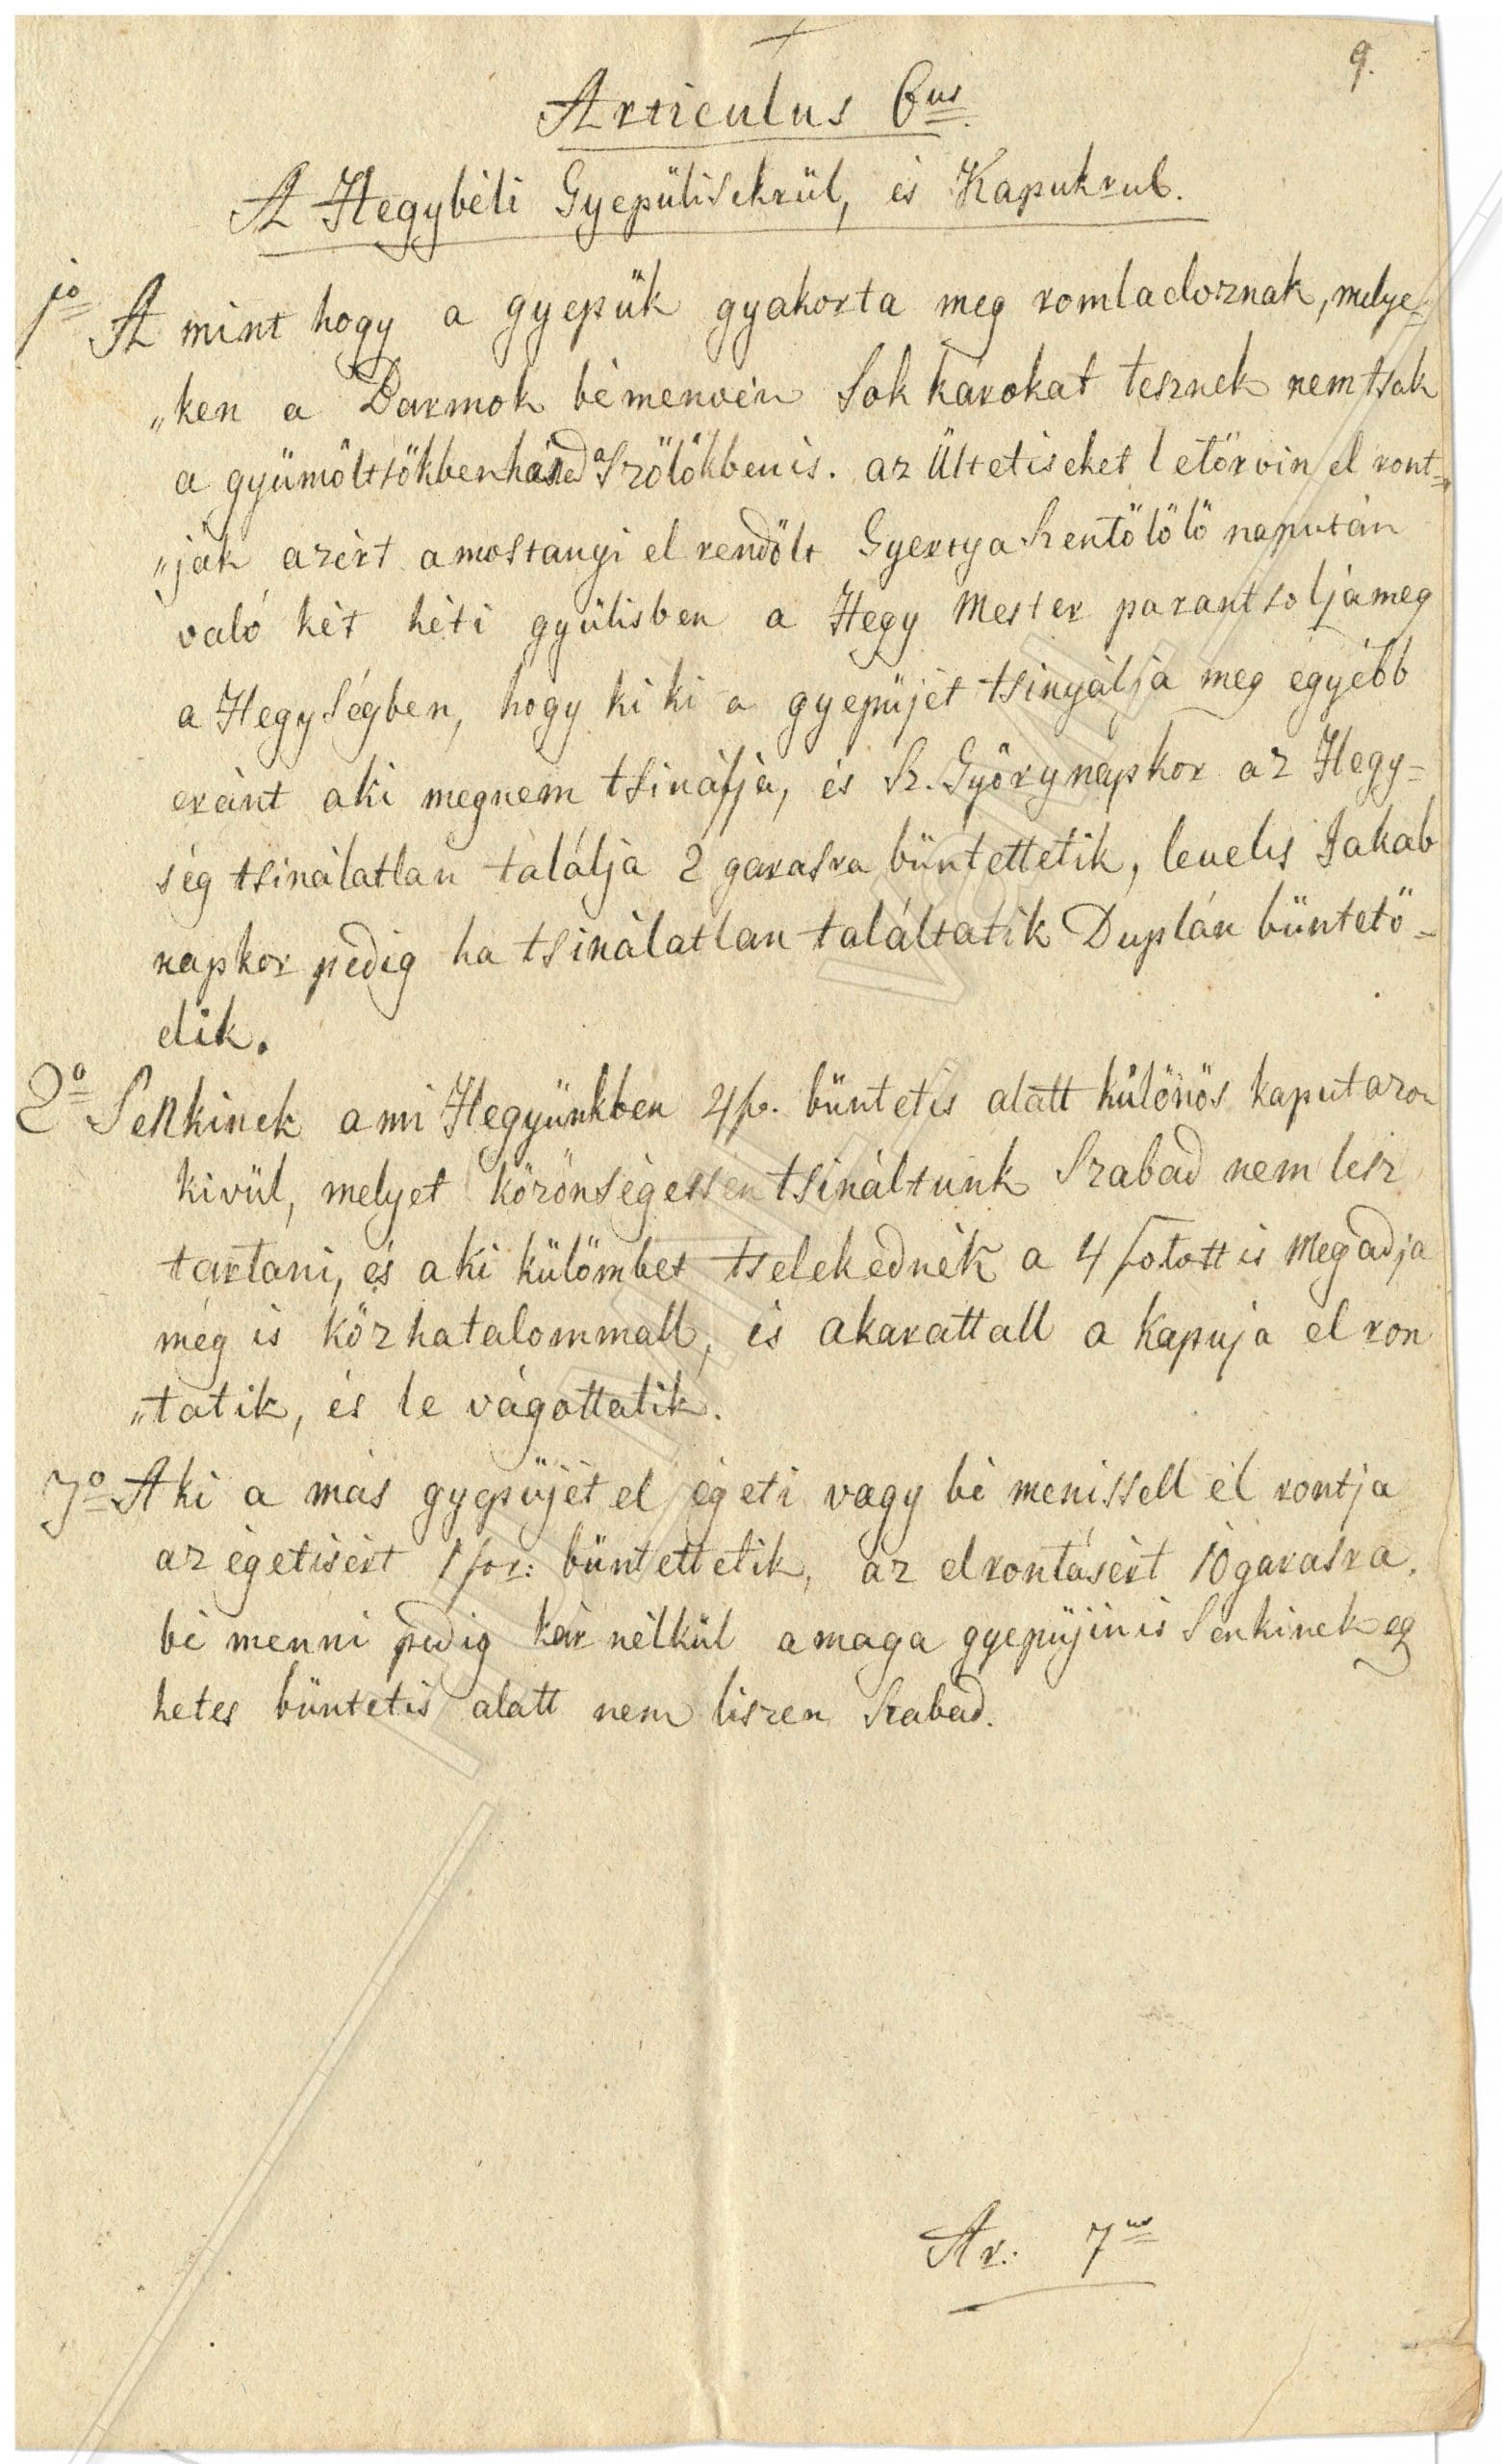 9.
Articulus 6us
A Hegybéli Gyepülisekrül, és Kapukrul.
1o A mint hogy a gyepük gyakorta meg romladoznak, melye=
„ken a Barmok bémenvén Sok károkat tesznek nem tsak
a gyümöltsökben a Szölökben is. az Ültetiseket letörvin el ront=
„ják azért a mostanyi el rendölt Gyertya Szentölölö nap után
való két héti gyülisben a Hegy Mester parantsolja meg
a HegySégben, hogy ki ki a gyepüjét tsinyálja meg egyébb
eránt aki meg nem tsinálja, és Sz. Györy napkor az Hegy=
ség tsinálatlan találja 2 garasra büntettetik, levelis Jakab
napkor pedig ha tsinálatlan találtatik Duplán büntetö=
dik.
2o Senkinek a mi Hegyünkben 4 fo. büntetis alatt különös kaput azon
kivül, melyet közönségessen tsináltunk Szabad nem lesz
tartani, és a ki külömbet tselekednék a 4 fotott is meg adja
még is közhatalommall, és akarattall a kapuja el ron
„tatik, és le vágattatik.
3o A ki a más gyepüjét el égeti vagy bé menissell el rontja
az égetisért 1 for: büntettetik, az elrontásért 10 garasra.
bé menni pedig kár nélkül a maga gyepüjin is Senkinek eg
hetes büntetis alatt nem liszen Szabad.
Ar: 7us